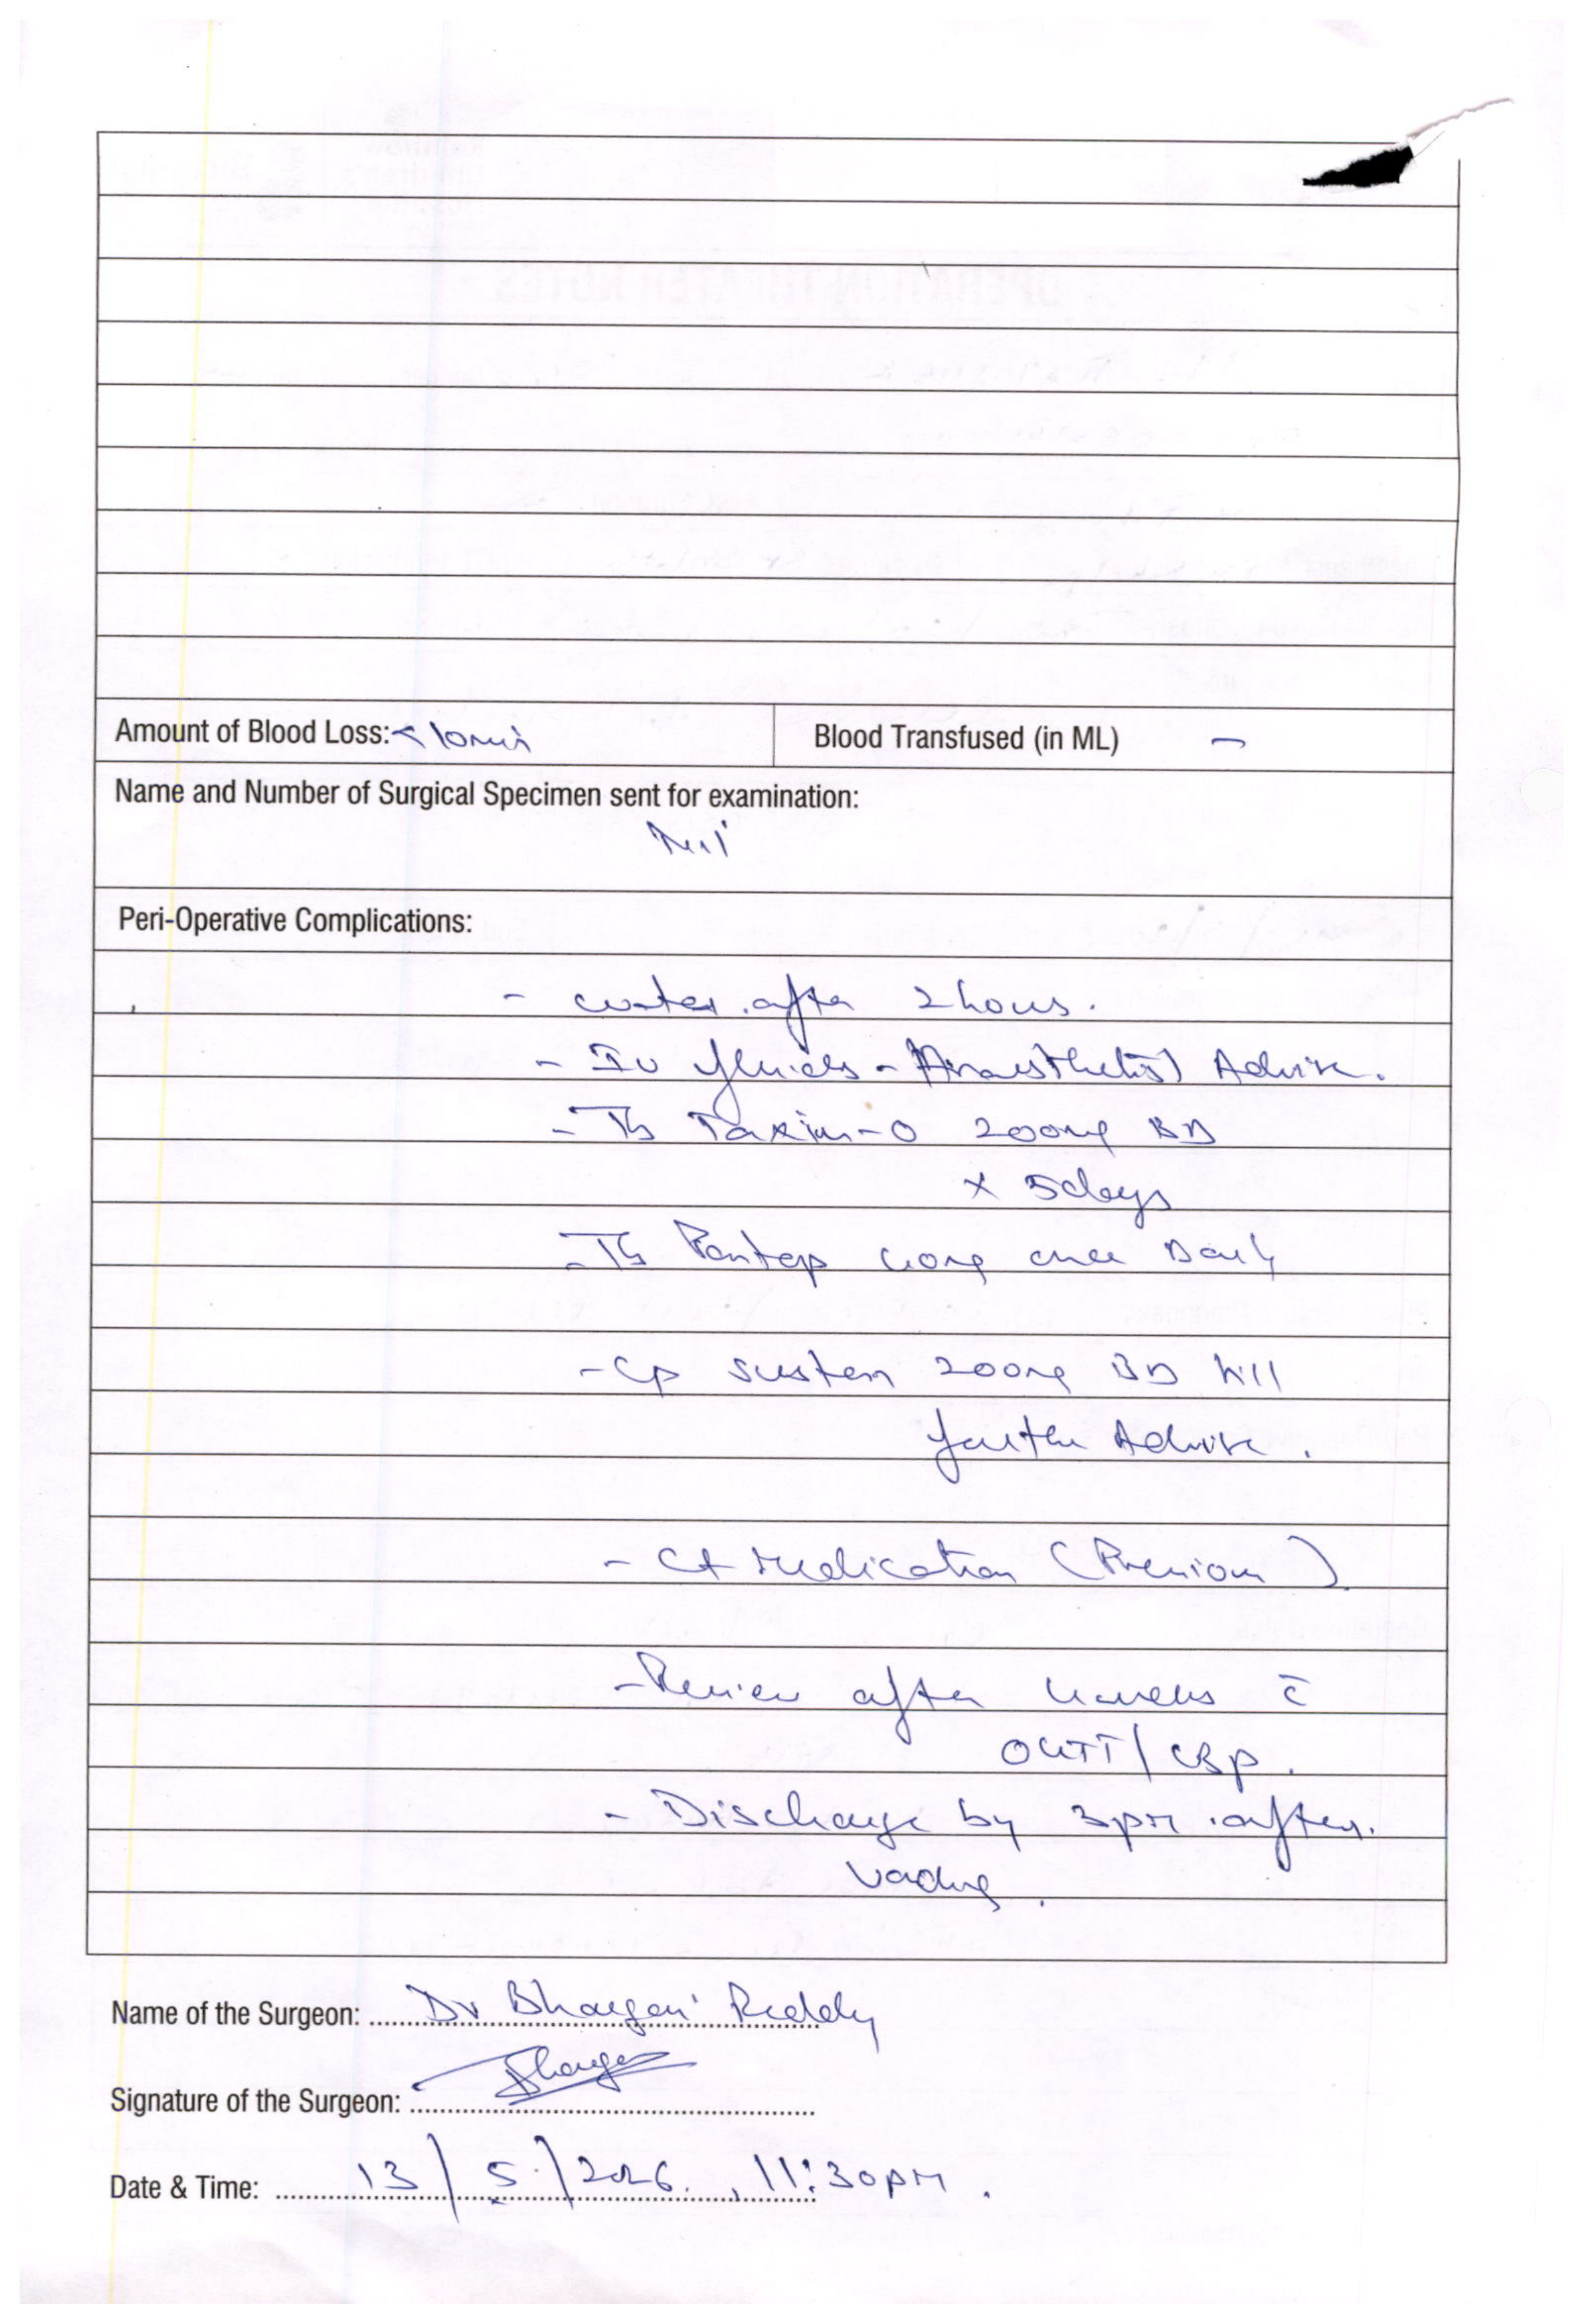 Amount of Blood Loss: < 10ml
Blood Transfused (in ML) -
Name and Number of Surgical Specimen sent for examination:
Nil
Peri-Operative Complications:
- water after 2 hours.
- IV fluids - Anaesthetist Advise.
- Tb Taxim-O 200mg BD
x 5days
- Tb Pantop 40mg once Daily
- Cp Susten 200mg BD till
further Advise.
- Ct Medication (Previous)
- Review after 4 weeks c̄
OGTT/CBP.
- Discharge by 3pm after
voiding.
Name of the Surgeon: Dr Bhargavi Reddy
Signature of the Surgeon:
Date & Time: 13/5/2026, 11:30PM.